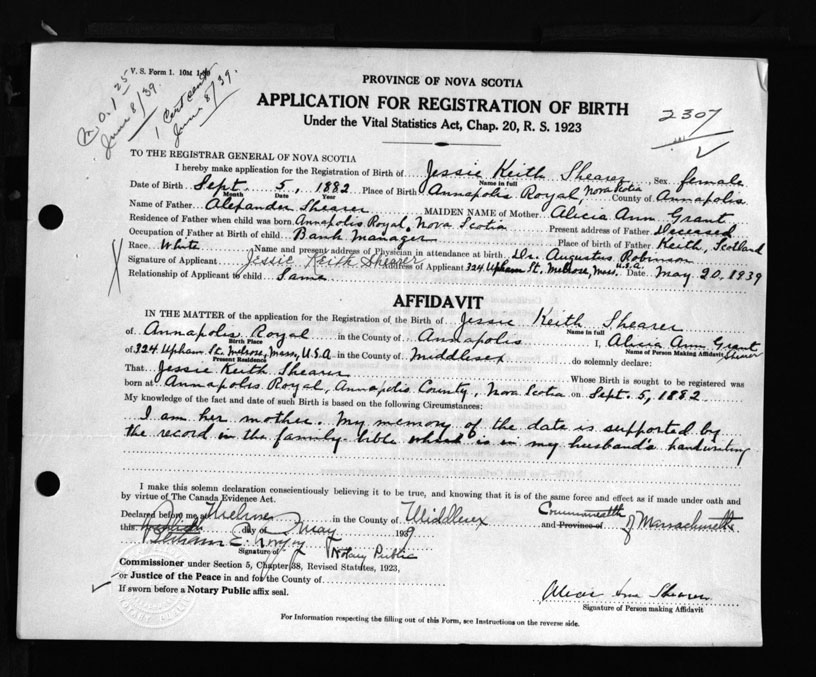 V. S. Form 1. 10M
M.O. 1 25
June 8/39.
1 Cert cent
June 8/39.
PROVINCE OF NOVA SCOTIA
APPLICATION FOR REGISTRATION OF BIRTH
Under the Vital Statistics Act, Chap. 20, R. S. 1923
2307
TO THE REGISTRAR GENERAL OF NOVA SCOTIA
I hereby make application for the Registration of Birth of Jessie Keith Shearer Sex female
Name in full
Date of Birth Sept. 5, 1882 Place of Birth Annapolis Royal, Nova Scotia County of Annapolis
Month Date Year
Name of Father Alexander Shearer MAIDEN NAME of Mother Alicia Ann Grant
Residence of Father when child was born Annapolis Royal, Nova Scotia Present address of Father Deceased
Occupation of Father at Birth of child Bank Manager Place of birth of Father Keith, Scotland
Race White Name and present address of Physician in attendance at birth Dr. Augustus Robinson
Signature of Applicant Jessie Keith Shearer Address of Applicant 324 Upham St. Melrose, Mass. U.S.A. Date May 20, 1939
Relationship of Applicant to child Same
AFFIDAVIT
IN THE MATTER of the application for the Registration of the Birth of Jessie Keith Shearer
Name in full
of Annapolis Royal in the County of Annapolis I, Alicia Ann Grant Shearer
Birth Place Name of Person Making Affidavit
of 324 Upham St. Melrose, Mass, U.S.A in the County of Middlesex do solemnly declare:
Present Residence
That Jessie Keith Shearer Whose Birth is sought to be registered was
born at Annapolis Royal, Annapolis County, Nova Scotia on Sept. 5, 1882
My knowledge of the fact and date of such Birth is based on the following Circumstances:
I am her mother. My memory of the date is supported by
the record in the family bible which is in my husband's handwriting
I make this solemn declaration conscientiously believing it to be true, and knowing that it is of the same force and effect as if made under oath and
by virtue of The Canada Evidence Act.
Declared before me at Melrose in the County of Middlesex and Province of Commonwealth of Massachusetts
this day of May 1939
Notary Public
Signature of
Commissioner under Section 5, Chapter 38, Revised Statutes, 1923,
or Justice of the Peace in and for the County of
If sworn before a Notary Public affix seal.
Alicia Ann Shearer
Signature of Person making Affidavit
For Information respecting the filling out of this Form, see Instructions on the reverse side.